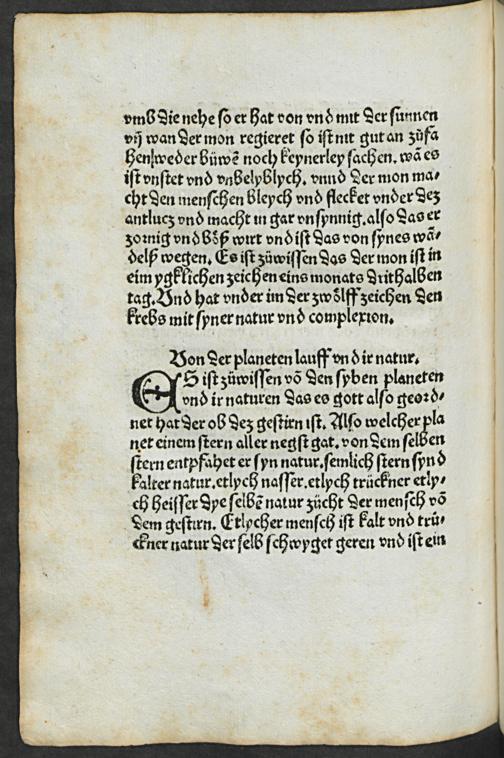 vmb die nehe so er hat von vnd mit der sunnen
vij wan der mon regieret so ist nit gut an zůfa
hen weder büwē noch keynerley sachen. wā es
ist vnstet vnd vnbelyblych. vnnd der mon ma⸗
cht den menschen bleych vnd flecket vnder dez
antlucz vnd macht in gar vnsynnig. also das er
zornig vnd böß wirt vnd ist das von synes wā⸗
dels wegen. Es ist zůwissen das der mon ist in
eim ygklichen zeichen eins monats drithalben
tag. Vnd hat vnder im der zwölff zeichen den
krebs mit syner natur vnd complexion.
Von der planeten lauff vnd ir natur.
ES ist zůwissen vō den syben planeten
vnd ir naturen das es gott also geord⸗
net hat der ob dez gestirn ist. Also welcher pla
net einem stern aller negst gat. von dem selben
stern entpfahet er syn natur. semlich stern synd
kalter natur. etlych nasser. etlych trückner etly⸗
ch heisser dye selbē natur zücht der mensch vō
dem gestirn. Etlycher mensch ist kalt vnd trü⸗
ckner natur der selb schwyget geren vnd ist ein